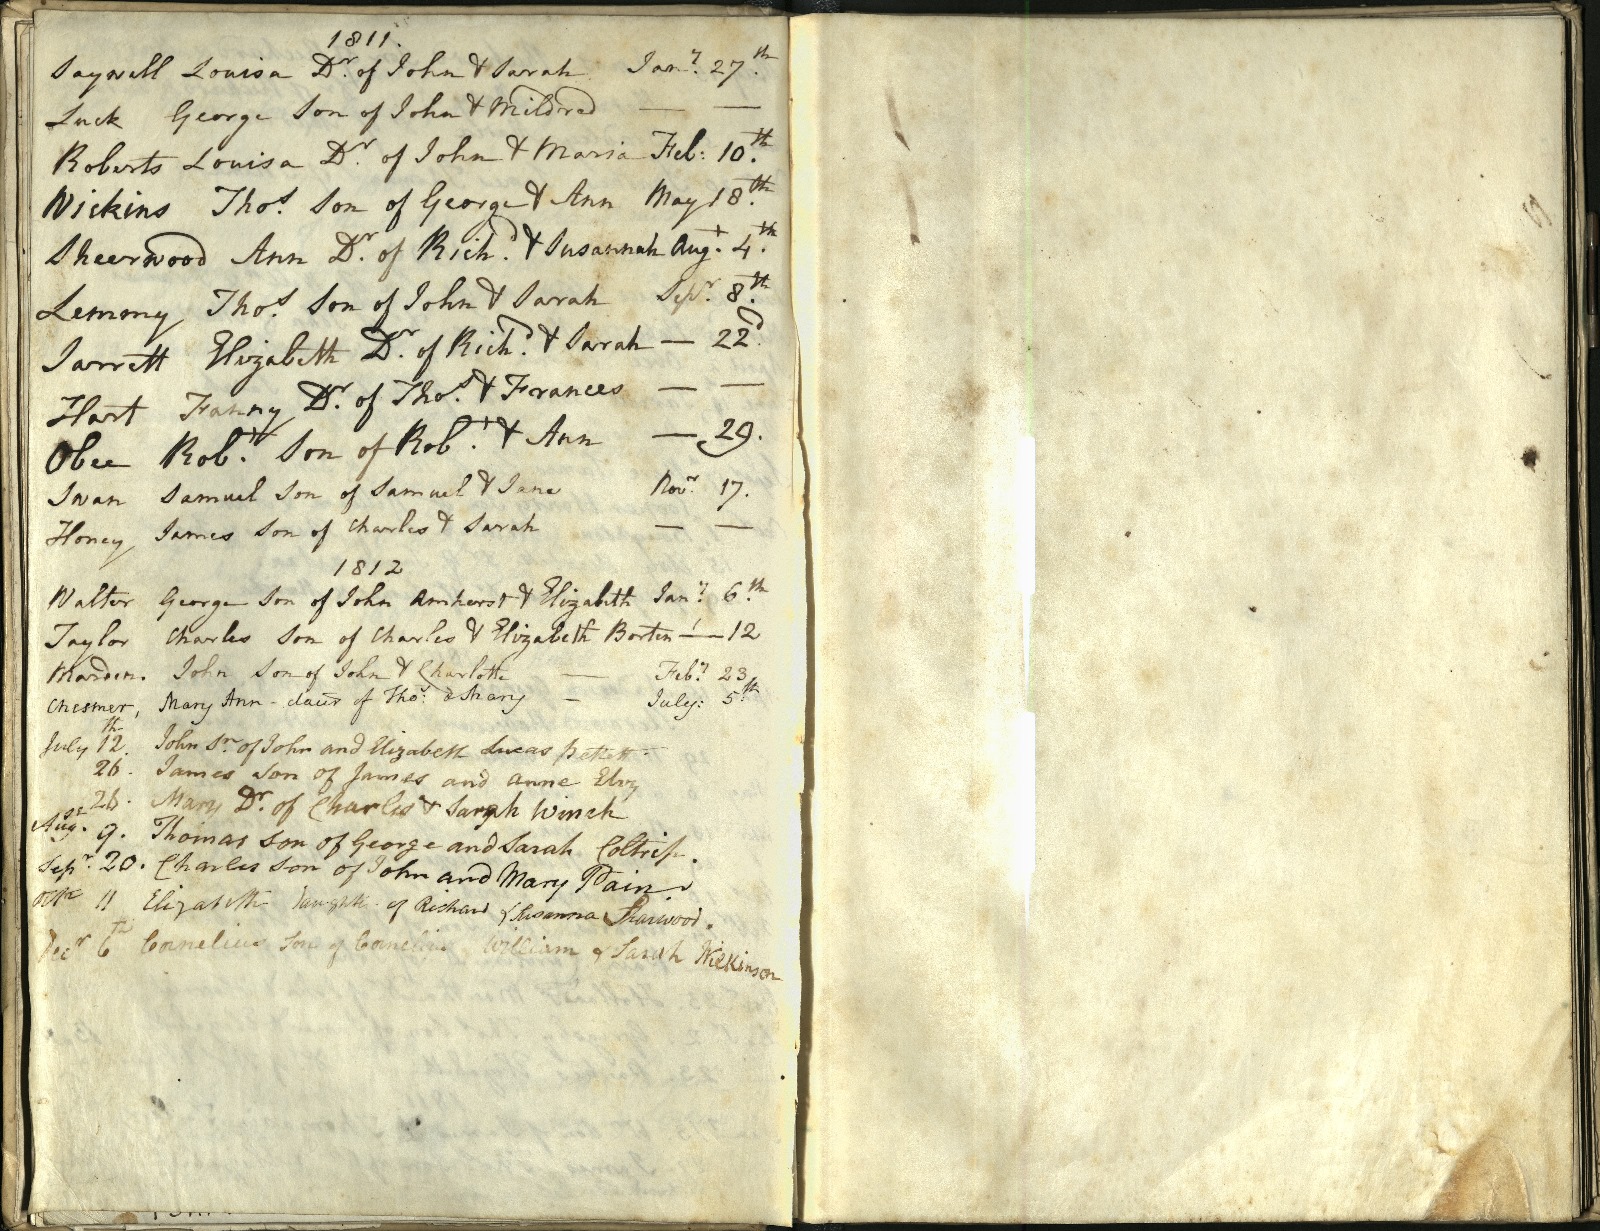 1811.
Saywell Louisa Dr. of John & Sarah Jany. 27th.
Luck George Son of John & Mildred — —
Roberts Louisa Dr. of John & Maria Feb: 10th.
Wickins Thos. Son of George & Ann May 18th.
Sheerwood Ann Dr. of Richd. & Susannah Augt. 4th.
Lemmy Thos. Son of John & Sarah Sepr. 8th.
Jarrett Elizabeth Dr. of Richd. & Sarah — 22d.
Hart Fanny Dr. of Thos. & Frances — —
Obee Robt. Son of Robt. & Ann — 29.
Swan Samuel Son of Samuel & Jane Novr. 17.
Honey James Son of Charles & Sarah — —
1812
Walter George Son of John Amherst & Elizabeth Jany. 6th.
Taylor Charles Son of Charles & Elizabeth Borten — 12
Marden. John Son of John & Charlotte — Feby. 23
Chesmer, Mary Ann - daur of Thos. & Mary — July: 5th
July 12th. John Sn. of John and Elizabeth Lucas
26. James Son of James and Anne Elvy
26. Mary Dr. of Charles & Sarah Winch
Augst. 9. Thomas Son of George and Sarah Coltrip.
Sepr. 20. Charles Son of John and Mary Pain
Octr 11 Elizabeth Daughtr. of Richard & Susanna Sharwood.
Decr 6th Cornelius Son of Cornelius William & Sarah Wilkinson